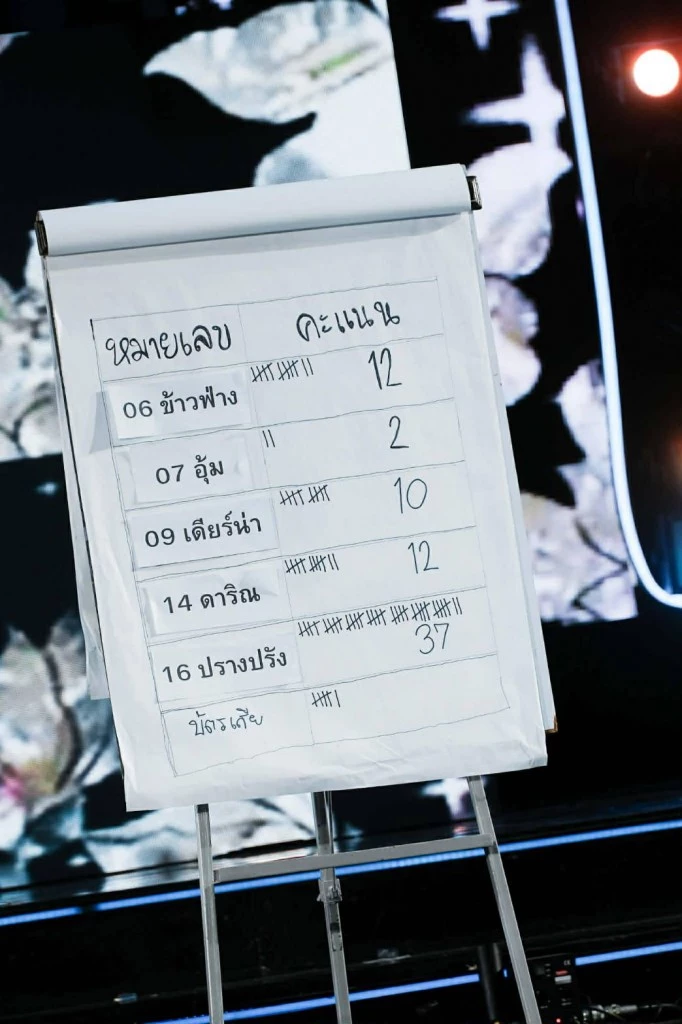 หมายเลข คะแนน
06 ข้าวฟ่าง 12
07 อุ้ม 2
09 เดียร์น่า 10
14 ดาริณ 12
16 ปรางปรัง 37
บัตรเสีย